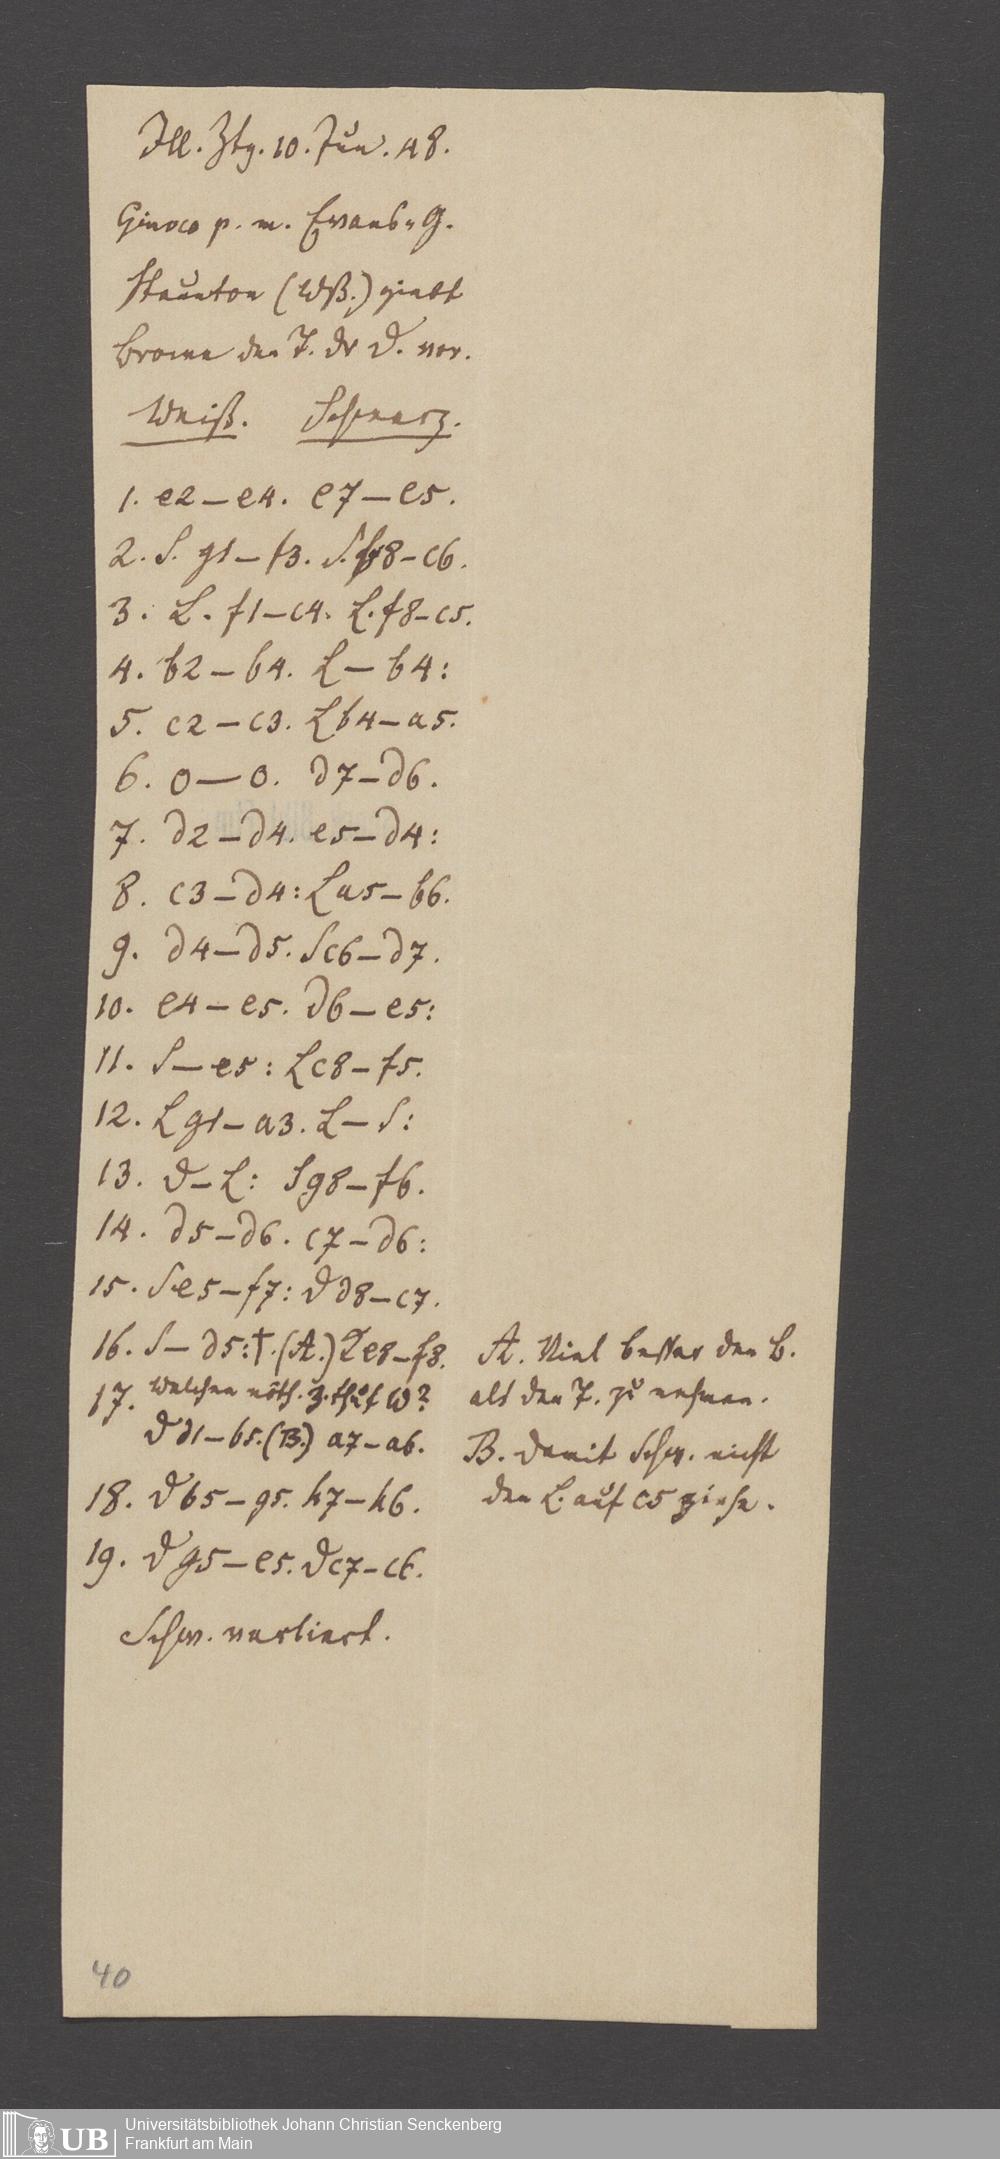 Ill. Ztg. 10. Jun. 48.
Ginoco p. m. Evans-G.
Staunton (Wß.) giebt
Browne den T. dr D. vor.
Weiß. Schwarz.
1. e2-e4. e7-e5.
2. S. g1-f3. S. b8-c6.
3. L. f1-c4. L. f8-c5.
4. b2-b4. L-b4:
5. c2-c3. Lb4-a5.
6. o-o. d7-d6.
7. d2-d4. e5-d4:
8. c3-d4: La5-b6.
9. d4-d5. Sc6-d7.
10. e4-e5. d6-e5:
11. S-e5: Lc8-f5.
12. Lg1-a3. L-S:
13. D-L: Sg8-f6.
14. d5-d6. c7-d6:
15. Se5-f7: Dd8-c7.
16. S-d5:†. (A.) Te8-f8.
17. Welchen nöth. Z. thut W?
Dd1-b5. (B.) a7-a6.
18. Db5-g5. h7-h6.
19. Dg5-e5. Dc7-c6.
Schw. verliert.
A. Viel besser den B.
als den T. zu nehmen.
B. Damit Schw. nicht
den L. auf c5 ziehe.
40
UB
Universitätsbibliothek Johann Christian Senckenberg
Frankfurt am Main